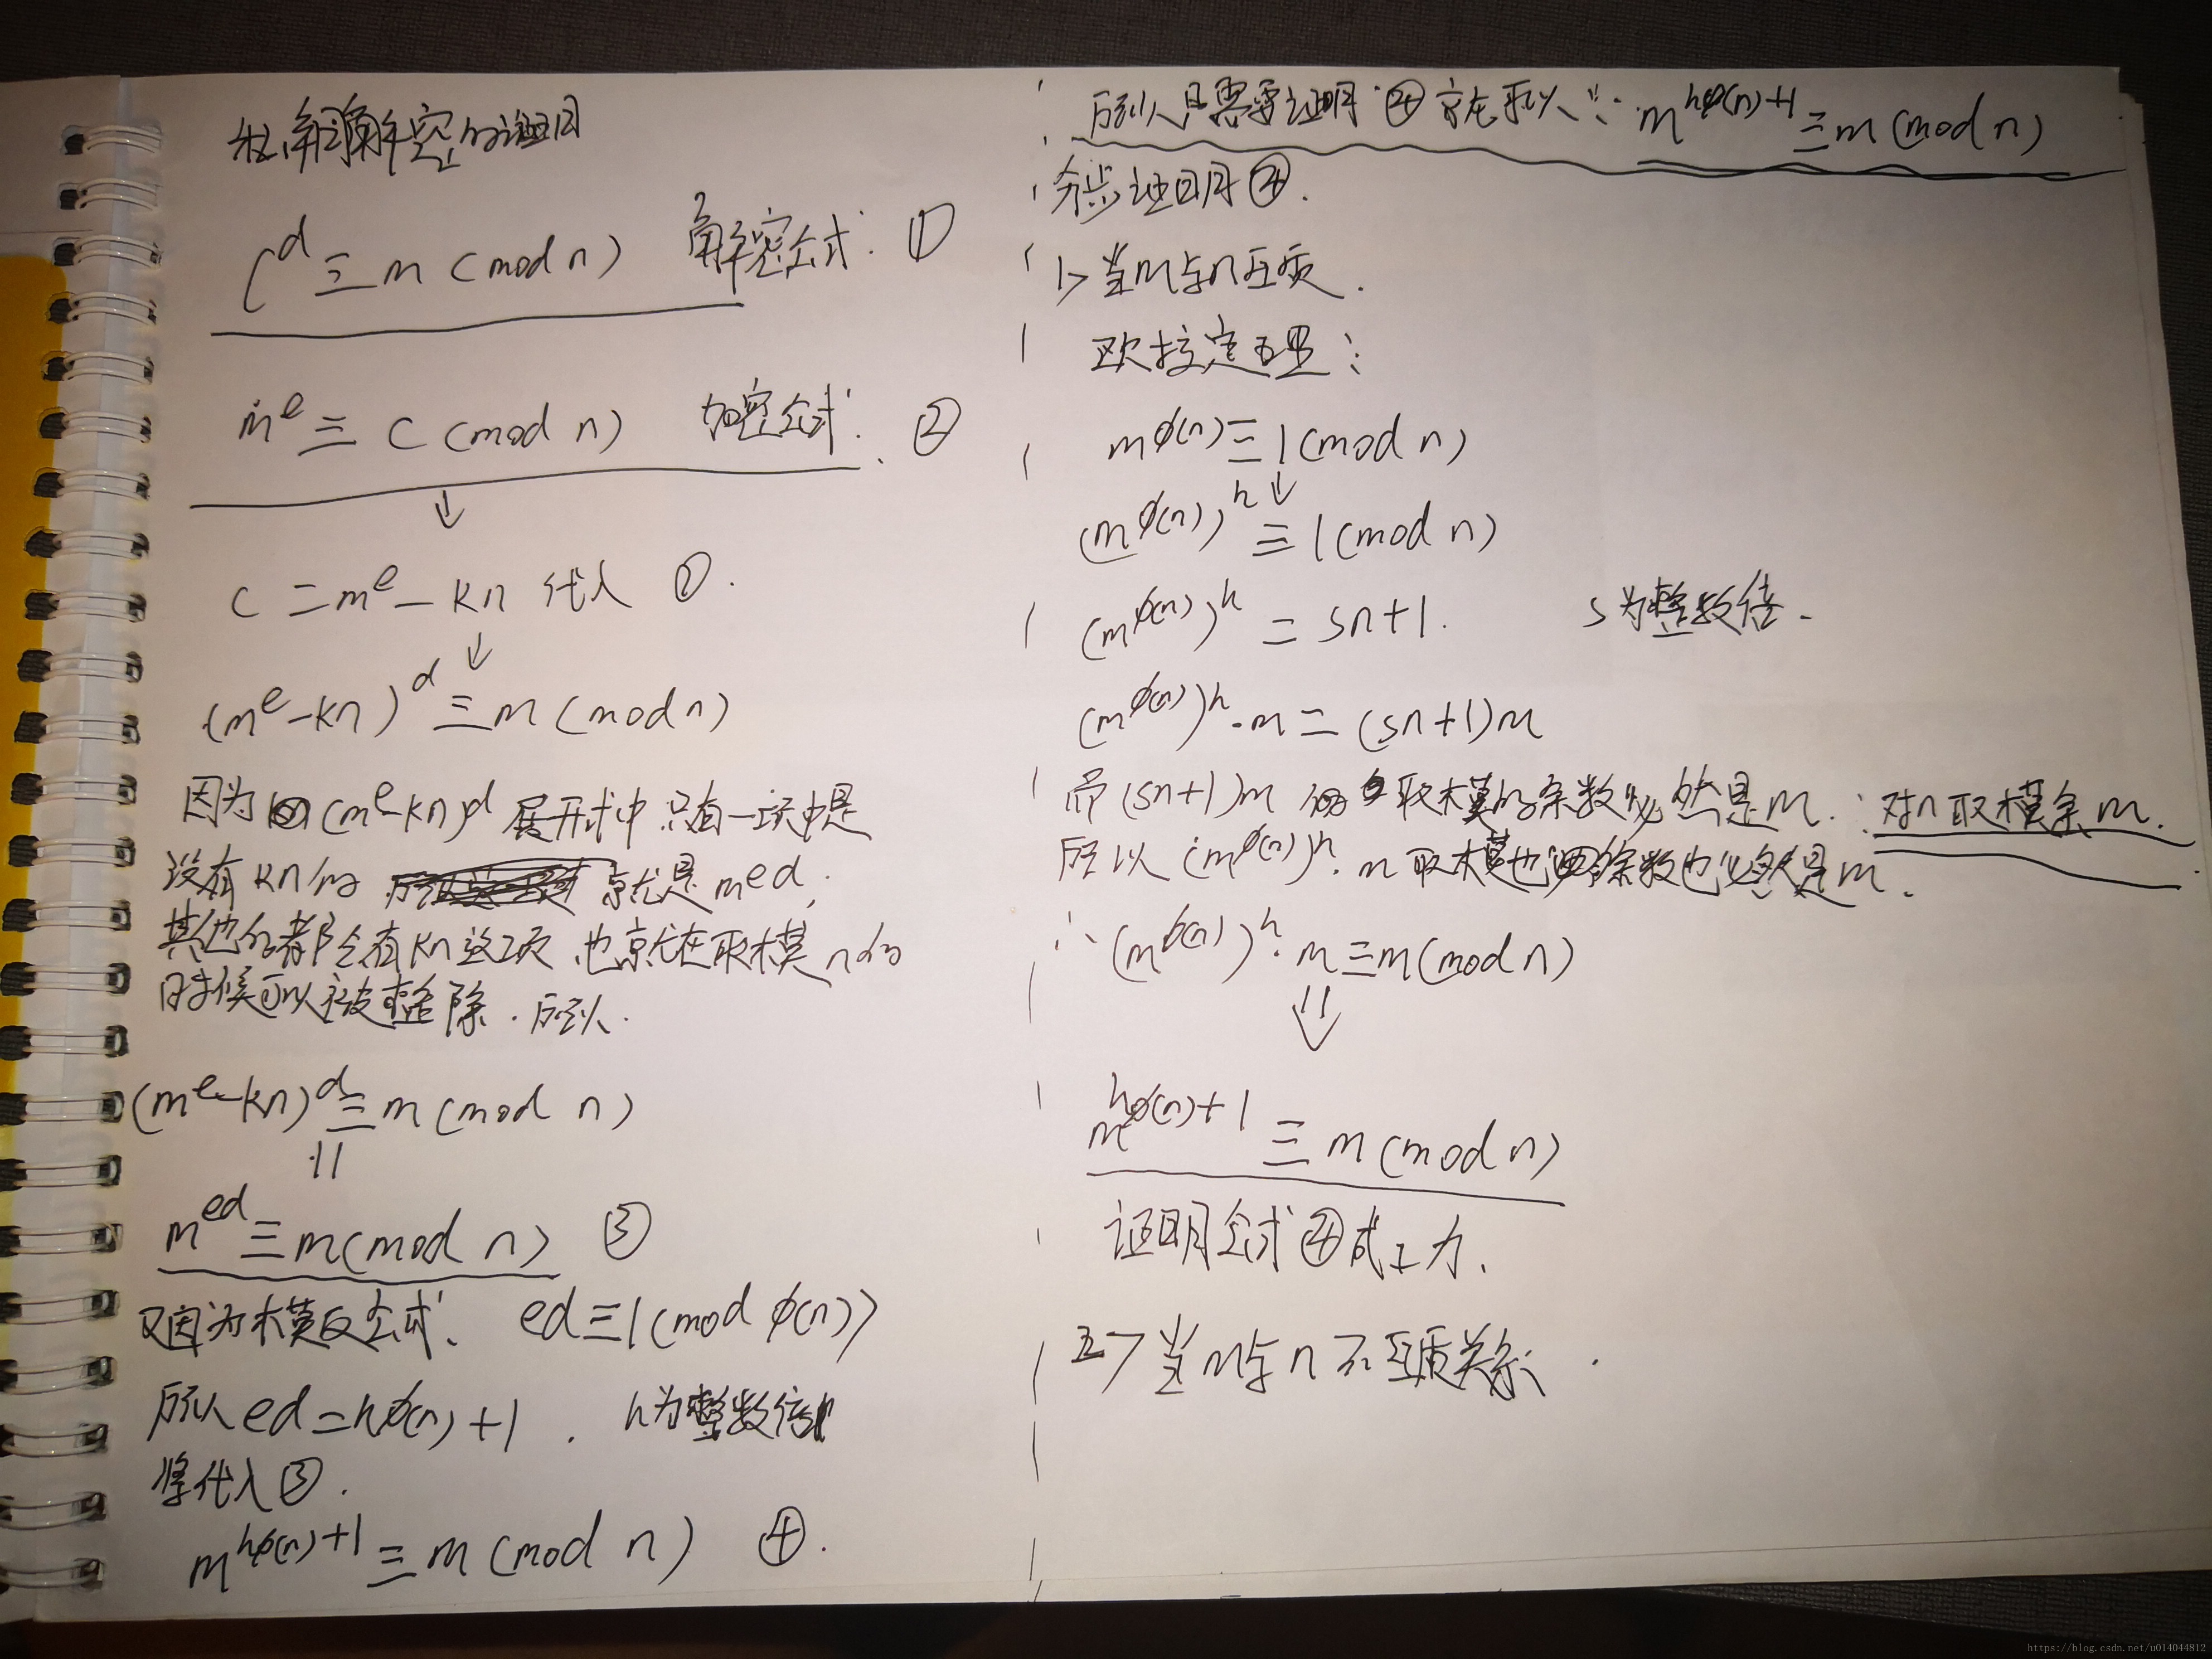 私钥解密的证明
c^d ≡ m (mod n) 解密公式. ①
m^e ≡ c (mod n) 加密公式. ②
↓
c = m^e - kn 代入 ①.
↓
(m^e - kn)^d ≡ m (mod n)
因为 (m^e - kn)^d 展开式中 只有一项中是
没有 kn 的 就是 m^ed,
其他的都会有 kn 这项 也就在取模 n 的
时候可以被整除. 所以.
(m^e - kn)^d ≡ m (mod n)
m^ed ≡ m (mod n) ③
又因为模反公式. ed ≡ 1 (mod φ(n))
所以 ed = hφ(n) + 1. h为整数倍
将代入 ③.
m^hφ(n)+1 ≡ m (mod n) ④.
所以只需要证明 ④ 就可以 ∵ m^hφ(n)+1 ≡ m (mod n)
证明 ④.
1> 当m与n互质.
欧拉定理:
m^φ(n) ≡ 1 (mod n)
↓
(m^φ(n))^h ≡ 1 (mod n)
(m^φ(n))^h = sn+1. s为整数倍.
(m^φ(n))^h · m = (sn+1)m
而 (sn+1)m 取模的余数必然是m. 对n取模余m.
所以 (m^φ(n))^h · m 取模也 余数也必然是m.
∴ (m^φ(n))^h · m ≡ m (mod n)
⇓
m^hφ(n)+1 ≡ m (mod n)
证明公式④成功.
2> 当m与n不互质关系.
https://blog.csdn.net/u014044812